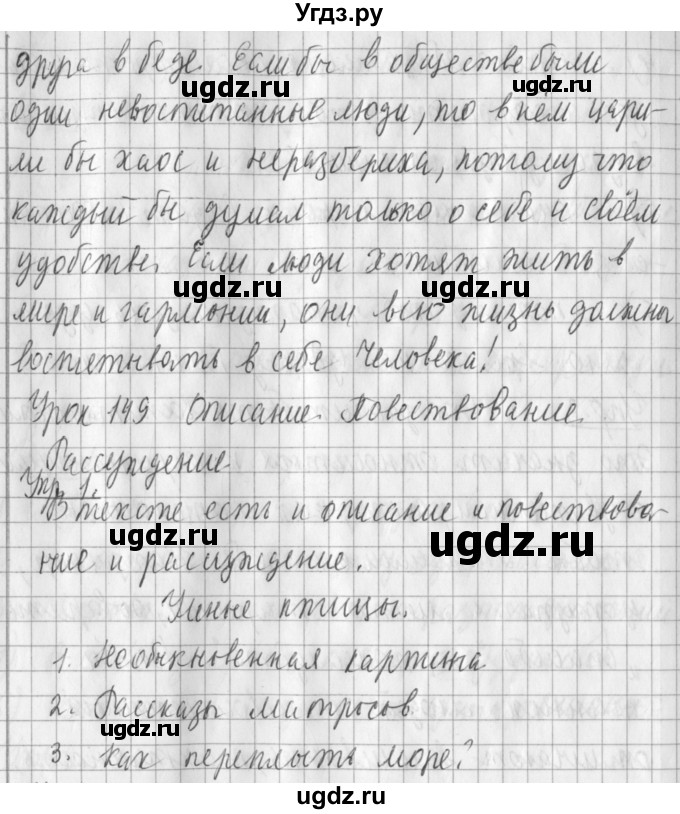 Угдз.ру
друга в беде. Если бы в обществе были
одни невоспитанные люди, то в нём цари-
ли бы хаос и неразбериха, потому что
каждый бы думал только о себе и своём
удобстве. Если люди хотят жить в
мире и гармонии, они всю жизнь должны
воспитывать в себе Человека!
Урок 149 Описание. Повествование.
Рассуждение
Упр 1.
В тексте есть и описание и повествова-
ние и рассуждение.
Умные птицы.
1. Необыкновенная картина
2. Рассказы матросов.
3. Как переплыть море?
ugdz.ru
ugdz.ru
ugdz.ru
ugdz.ru
ugdz.ru
ugdz.ru
ugdz.ru
ugdz.ru
ugdz.ru
ugdz.ru